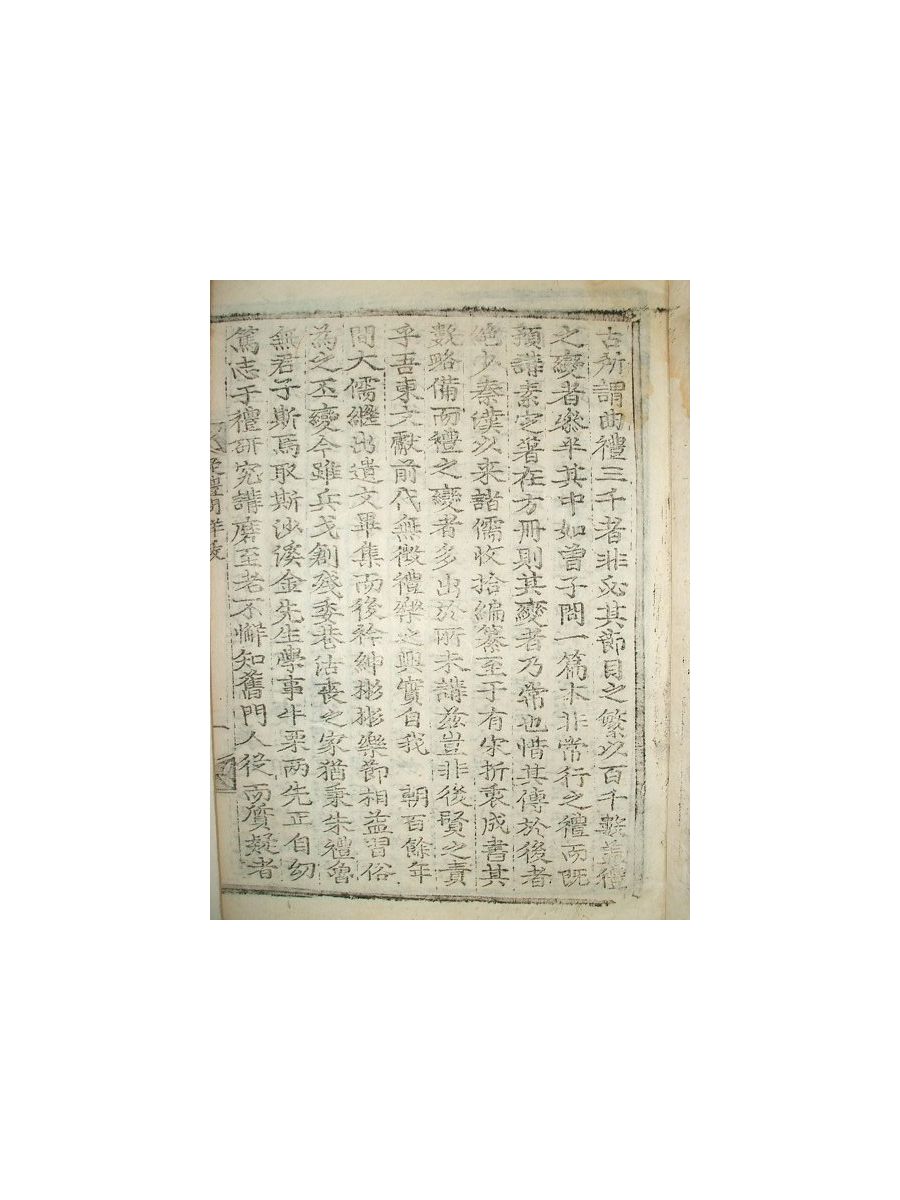 古所謂曲禮三千者非必其節目之繁以百千數盖禮
之變者參半其中如曾子問一篇本非常行之禮而旣
預講素定著在方冊則其變者乃常也惜其傳於後者
絶少秦漢以来諸儒收拾編纂至于有宋折衷成書其
數略備而禮之變者多出於所未講玆豈非後賢之責
乎吾東文獻前代無徵禮樂之興實自我 朝百餘年
間大儒繼出遺文畢集而後衿紳彬彬樂節相益習俗
為之丕變今雖兵戈創殘委巷沽喪之家猶秉朱禮魯
無君子斯焉取斯沙溪金先生學事牛栗两先正自幼
篤志于禮研究講磨至老不懈知舊門人従而質疑者